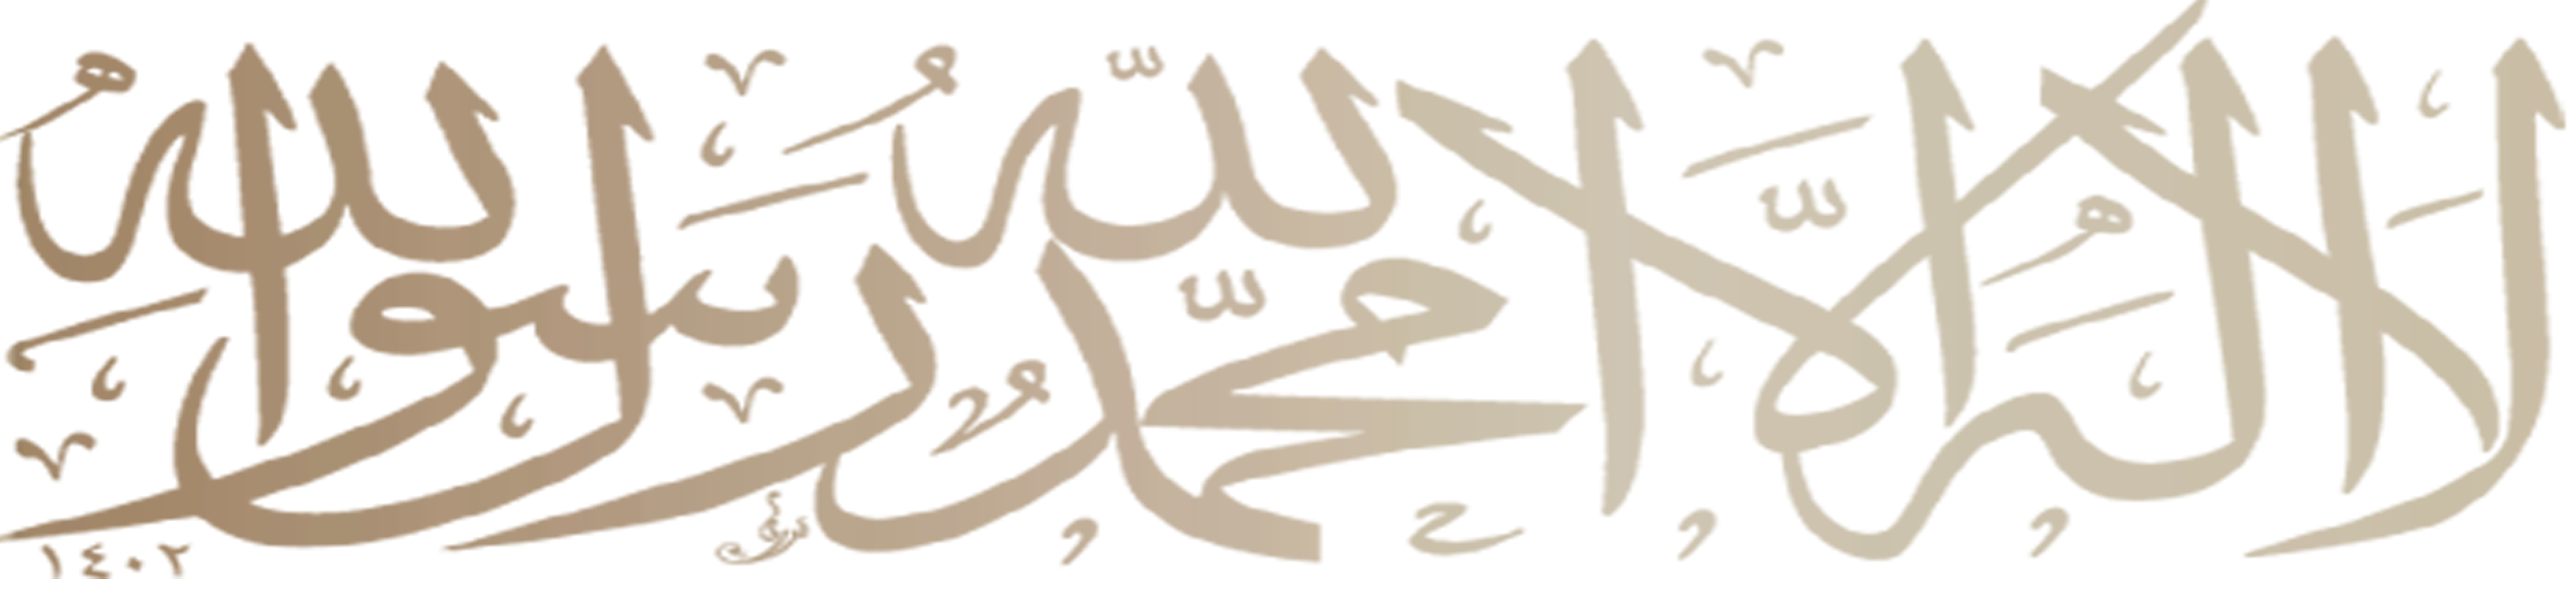 لَا إِلٰهَ إِلَّا اللّٰهُ مُحَمَّدٌ رَسُولُ اللّٰهِ
١٤٠٢